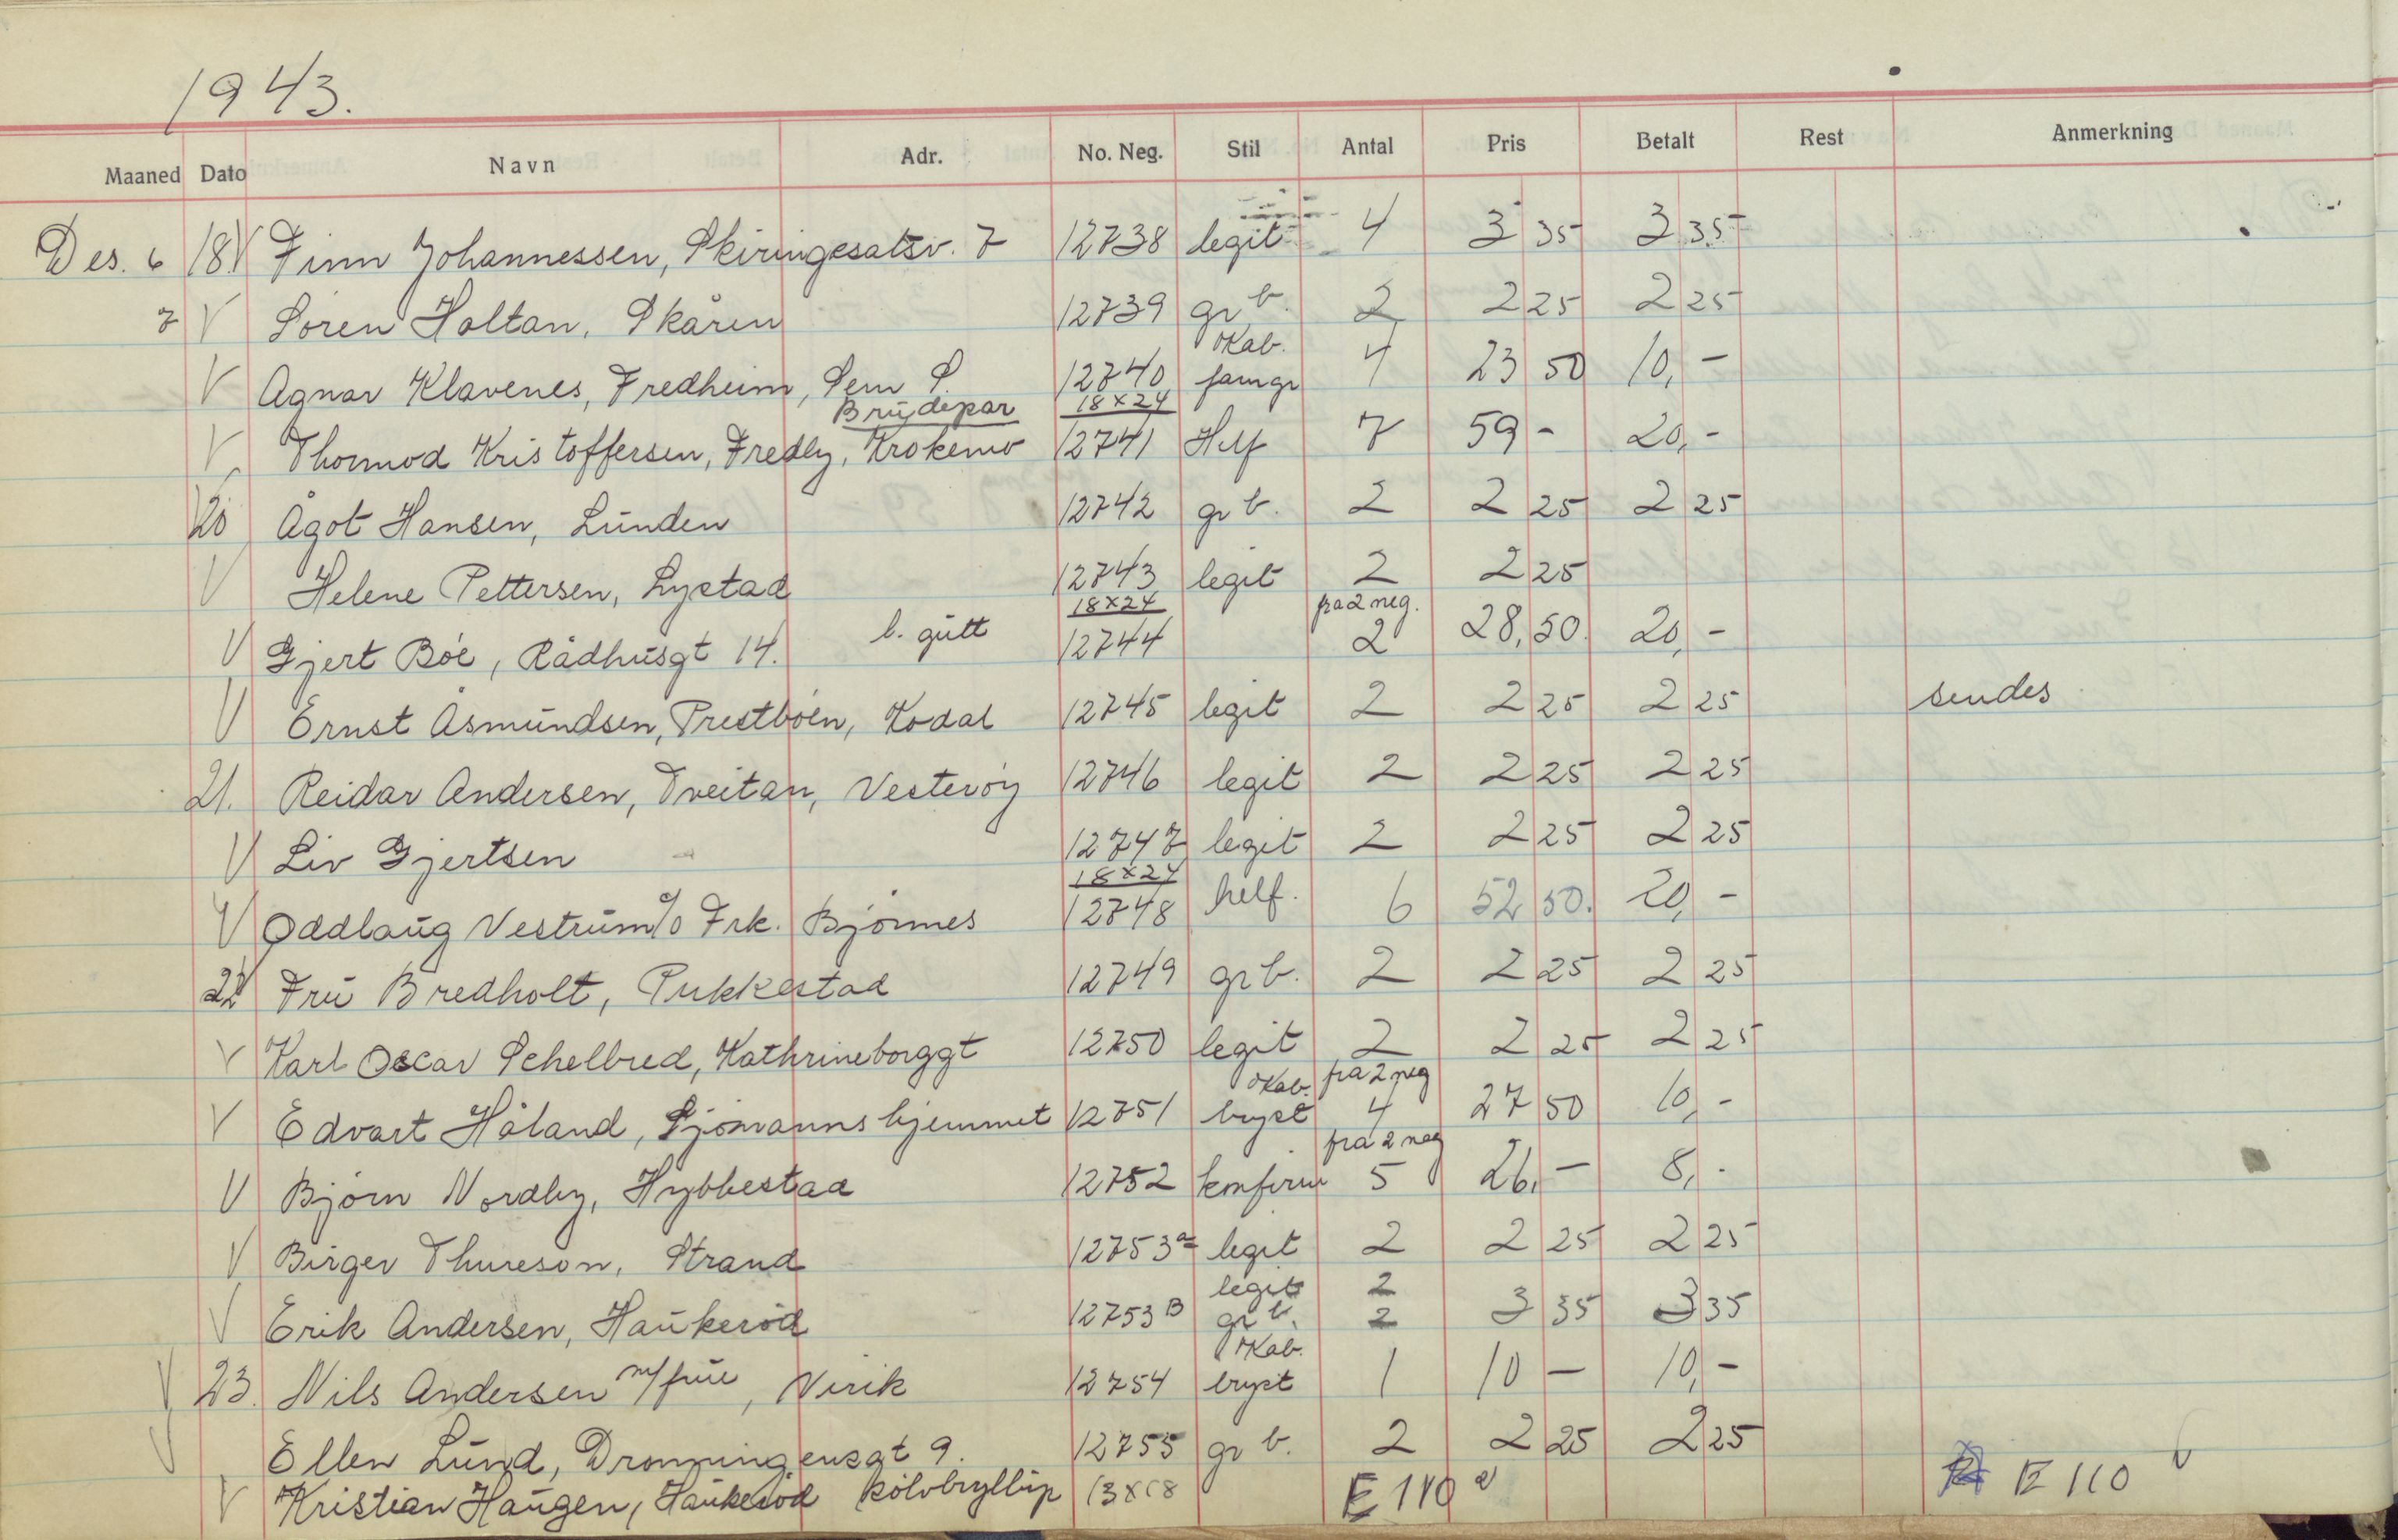 1943.
Maaned Dato Navn Adr. No. Neg. Stil Antal Pris Betalt Rest Anmerkning
Des. 6 18 V Finn Johannessen, Skiringesalsv. 7 12738 legit 4 3 35 3 35
7 V Sören Holtan, Skåren 12739 gr b. 2 2 25 2 25
Kab.
V Agnar Klavenes, Fredheim, Sem S. 12740 famgr 4 23 50 10,-
Brudepar 18x24
V Thormod Kristoffersen, Fredly, Krokemo 12741 Helf 7 59 - 20,-
20 Ågot Hansen, Lunden 12742 gr b. 2 2 25 2 25
V Helene Pettersen, Lystad 12743 legit 2 2 25
18x24 fra 2 neg.
V Gjert Böe, Rådhusgt 14. l. gutt 12744 2 28,50. 20,-
V Ernst Åsmundsen, Prestböen, Kodal 12745 legit 2 2 25 2 25 sendes
21. Reidar Andersen, Tveitan, Vesteröy 12746 legit 2 2 25 2 25
V Liv Gjertsen 12747 legit 2 2 25 2 25
18x24
V Oddlaug Vestrum c/o Frk. Bjönnes 12748 helf. 6 52 50. 20,-
22 V Fru Bredholt, Pukkestad 12749 gr b. 2 2 25 2 25
V Karl Oscar Schelbred, Kathrineborggt 12750 legit 2 2 25 2 25
Kab. fra 2 neg
V Edvart Håland, Sjömannshjemmet 12751 bryst 4 27 50 10,-
fra 2 neg
V Björn Nordby, Hybbestad 12752 konfirm 5 26,- 8,-
V Birger Thureson, Strand 12753 a legit 2 2 25 2 25
legit 2
V Erik Andersen, Haukeröd 12753 B gr b. 2 3 35 3 35
Kab.
V 23. Nils Andersen m/frue, Virik 12754 bryst 1 10 - 10,-
V Ellen Lund, Dronningensgt 9. 12755 gr b. 2 2 25 2 25
V Kristian Haugen, Haukeröd sölvbryllup 13x18 E 110 a E 110